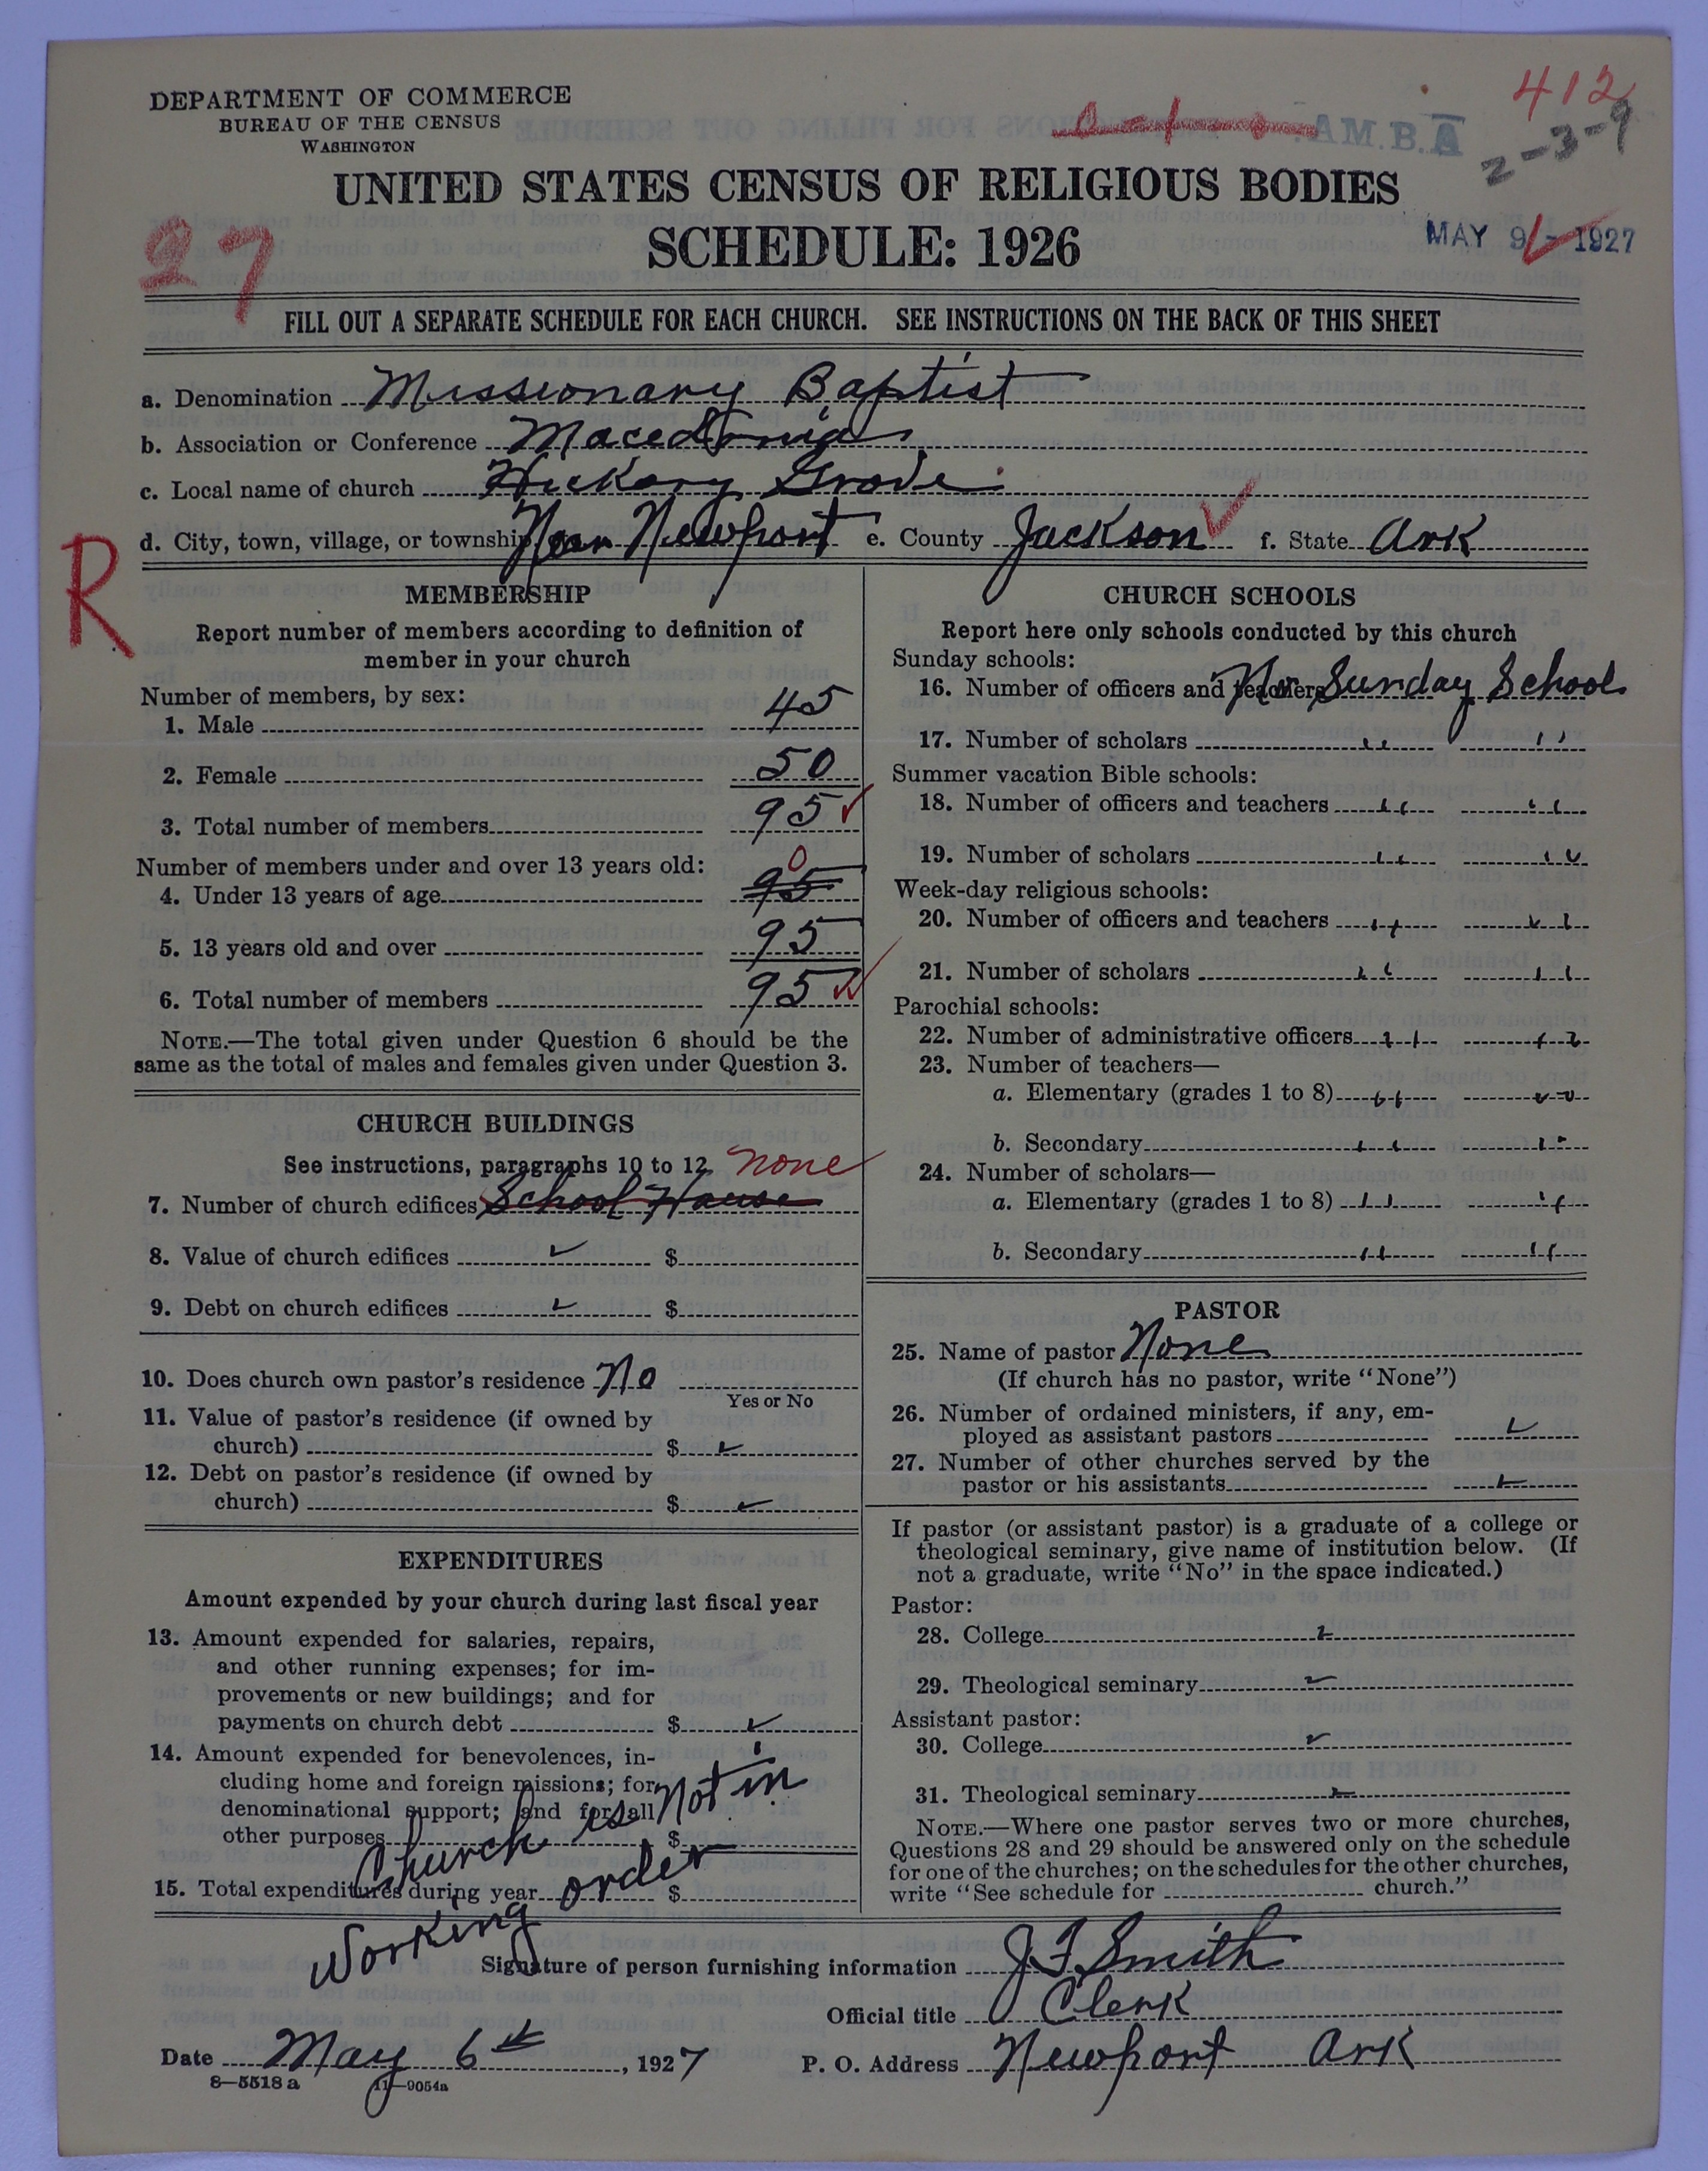 412
DEPARTMENT OF COMMERCE
BUREAU OF THE CENSUS
WASHINGTON
A.M.B.A
2-3-9
UNITED STATES CENSUS OF RELIGIOUS BODIES
SCHEDULE: 1926
27
MAY 9 - 1927
FILL OUT A SEPARATE SCHEDULE FOR EACH CHURCH. SEE INSTRUCTIONS ON THE BACK OF THIS SHEET
a. Denomination Missionary Baptist
b. Association or Conference Macedonia
c. Local name of church Hickory Grove
d. City, town, village, or township Near Newport e. County Jackson f. State Ark
R
MEMBERSHIP
Report number of members according to definition of
member in your church
Number of members, by sex:
1. Male 45
2. Female 50
3. Total number of members 95
Number of members under and over 13 years old:
4. Under 13 years of age 95 0
5. 13 years old and over 95
6. Total number of members 95
NOTE.—The total given under Question 6 should be the
same as the total of males and females given under Question 3.
CHURCH BUILDINGS
See instructions, paragraphs 10 to 12. none
7. Number of church edifices School House
8. Value of church edifices $
9. Debt on church edifices $
10. Does church own pastor's residence No
Yes or No
11. Value of pastor's residence (if owned by
church) $
12. Debt on pastor's residence (if owned by
church) $
EXPENDITURES
Amount expended by your church during last fiscal year
13. Amount expended for salaries, repairs,
and other running expenses; for im-
provements or new buildings; and for
payments on church debt $
14. Amount expended for benevolences, in-
cluding home and foreign missions; for
denominational support; and for all
other purposes $
15. Total expenditures during year $
Church is Not in
Working order
CHURCH SCHOOLS
Report here only schools conducted by this church
Sunday schools:
16. Number of officers and teachers No Sunday School
17. Number of scholars " "
Summer vacation Bible schools:
18. Number of officers and teachers " "
19. Number of scholars " "
Week-day religious schools:
20. Number of officers and teachers " "
21. Number of scholars " "
Parochial schools:
22. Number of administrative officers " "
23. Number of teachers—
a. Elementary (grades 1 to 8) " "
b. Secondary " "
24. Number of scholars—
a. Elementary (grades 1 to 8) " "
b. Secondary " "
PASTOR
25. Name of pastor None
(If church has no pastor, write "None")
26. Number of ordained ministers, if any, em-
ployed as assistant pastors
27. Number of other churches served by the
pastor or his assistants
If pastor (or assistant pastor) is a graduate of a college or
theological seminary, give name of institution below. (If
not a graduate, write "No" in the space indicated.)
Pastor:
28. College
29. Theological seminary
Assistant pastor:
30. College
31. Theological seminary
NOTE.—Where one pastor serves two or more churches,
Questions 28 and 29 should be answered only on the schedule
for one of the churches; on the schedules for the other churches,
write "See schedule for church."
Signature of person furnishing information J F Smith
Official title Clerk
Date May 6th, 1927 P. O. Address Newport Ark
8—5518 a 11—9054a